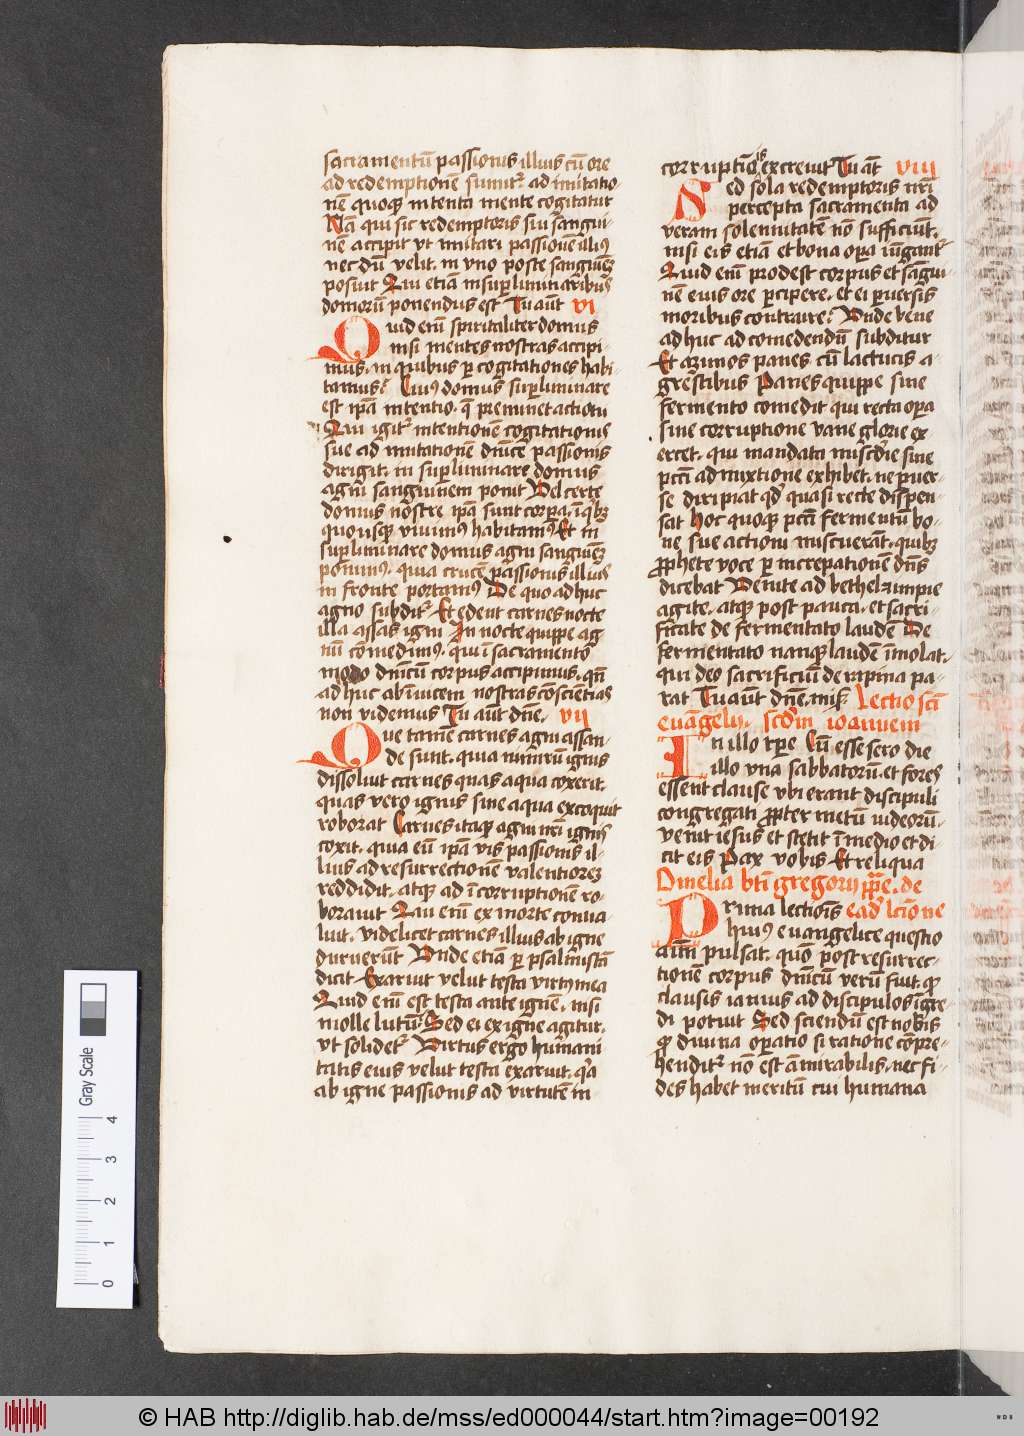 sacramentū passionis illius cū ore
ad redemptionē sumitᷣ ad imitatio
nē quoqꝫ intenta mente cogitatur
Nā qui sic redemptoris sui sangui-
nē accipit vt imitari passionē illiꝰ
nec dū velit. in vno poste sanguinēꝫ
posuit Qui etiā in suꝑliminaribus
domorū ponendus est Tu aūt vi
Quid enī spiritaliter domus
nisi mentes nostras accipi
mus. in quibus ꝑ cogitationes habi
tamus? Cuiꝰ domus suꝑliminare
est ip̄a intentio. q̄ preminet actioni
Qui igitᷣ intentionē cogitationis
sue ad imitationē dn̄ice passionis
dirigit. in suꝑliminare domus
agni sanguinem ponit Vel certe
domus nostre ip̄a sunt corpora, ī qͥbꝫ
quousqꝫ viuimꝰ habitamꝰ Et in
suꝑliminare domus agni sanguinēꝫ
ponimꝰ. quia crucē passionis illius
in fronte portamꝰ De quo adhuc
agno subditᷣ Et edent carnes nocte
illa assas igni In nocte quippe ag
nū comedimꝰ. qui ī sacramento
modo dn̄icū corpus accipimus. qn̄
adhuc abīuicem nostras cōscientias
non videmus Tu aūt dn̄e. vii
Que tamē carnes agni assan-
de sunt. quia nimirū ignis
dissoluit carnes quas aqua coxerit.
quas vero ignis sine aqua excoquit
roborat Carnes itaqꝫ agni nr̄i ignis
coxit. quia eū ip̄a vis passionis il-
lius ad resurrectionē valentiorēꝫ
reddidit. atqꝫ ad īcorruptionē ro-
borauit Qui enī ex morte conua-
luit. videlicet carnes illius ab igne
duruerūt Vnde etiā ꝑ psalmistā
dicit Exaruit velut testa virtꝰ mea
Quid enī est testa ante ignē. nisi
molle lutū? Sed ei ex igne agitur.
vt solidetᷣ Virtus ergo humani
tatis eius velut testa exaruit. qͥa
ab igne passionis ad virtutē in
corruptiōis excreuit Tu aūt viii
Sed sola redemptoris nr̄i
percepta sacramenta ad
veram solennitatē nō sufficiūt.
nisi eis etiā et bona oꝑa iūgantᷣ
Quid enī prodest corpus et sāgui-
nē eius ore ꝑcipere. et ei ꝑuersis
moribus contraire? Vnde bene
adhuc ad comedendū subditur
Et azimos panes cū lactucis a-
grestibus Panes quippe sine
fermento comedit qui recta oꝑa
sine corruptione vane glorie ex-
ercet. qui mandata mīscd̄ie sine
pctī admixtione exhibet. ne ꝑuer-
se diripiat qd̄ quasi recte dispen-
sat Hoc quoqꝫ pctī fermentū bo-
ne sue actioni miscuerāt. quibꝫ
ꝓphete voce ꝑ increpationē dn̄s
dicebat Venite ad bethel ⁊ impie
agite. atqꝫ post pauca. et sacri-
ficate de fermentato laudē De
fermentato nanqꝫ laudē īmolat.
qui deo sacrificiū de rapina pa-
rat Tu aūt dn̄e. mis̄. Lectio scī
euāngelij. scd̄m ioannem
In illo tꝑe Cū esset sero die
illo vna sabbatorū. et fores
essent clause vbi erant discipuli
congregati ꝓpter metū iudeorū.
venit iesus et stetit ī medio et di-
cit eis Pax vobis Et reliqua
Omelia btī gregorij pp̄e. de
Prima lectiōis eād lcīone
huiꝰ euangelice questio
aīm pulsat. quō post resurrec-
tionē corpus dn̄icū verū fuit. qꝫ
clausis ianuis ad discipulos īgre-
di potuit Sed sciendū est nobis
qꝫ diuina oꝑatio si ratione cōpre-
henditᷣ nō est ammirabilis. nec fi-
des habet meritū cui humana
Gray Scale
0 1 2 3 4
© HAB http://diglib.hab.de/mss/ed000044/start.htm?image=00192